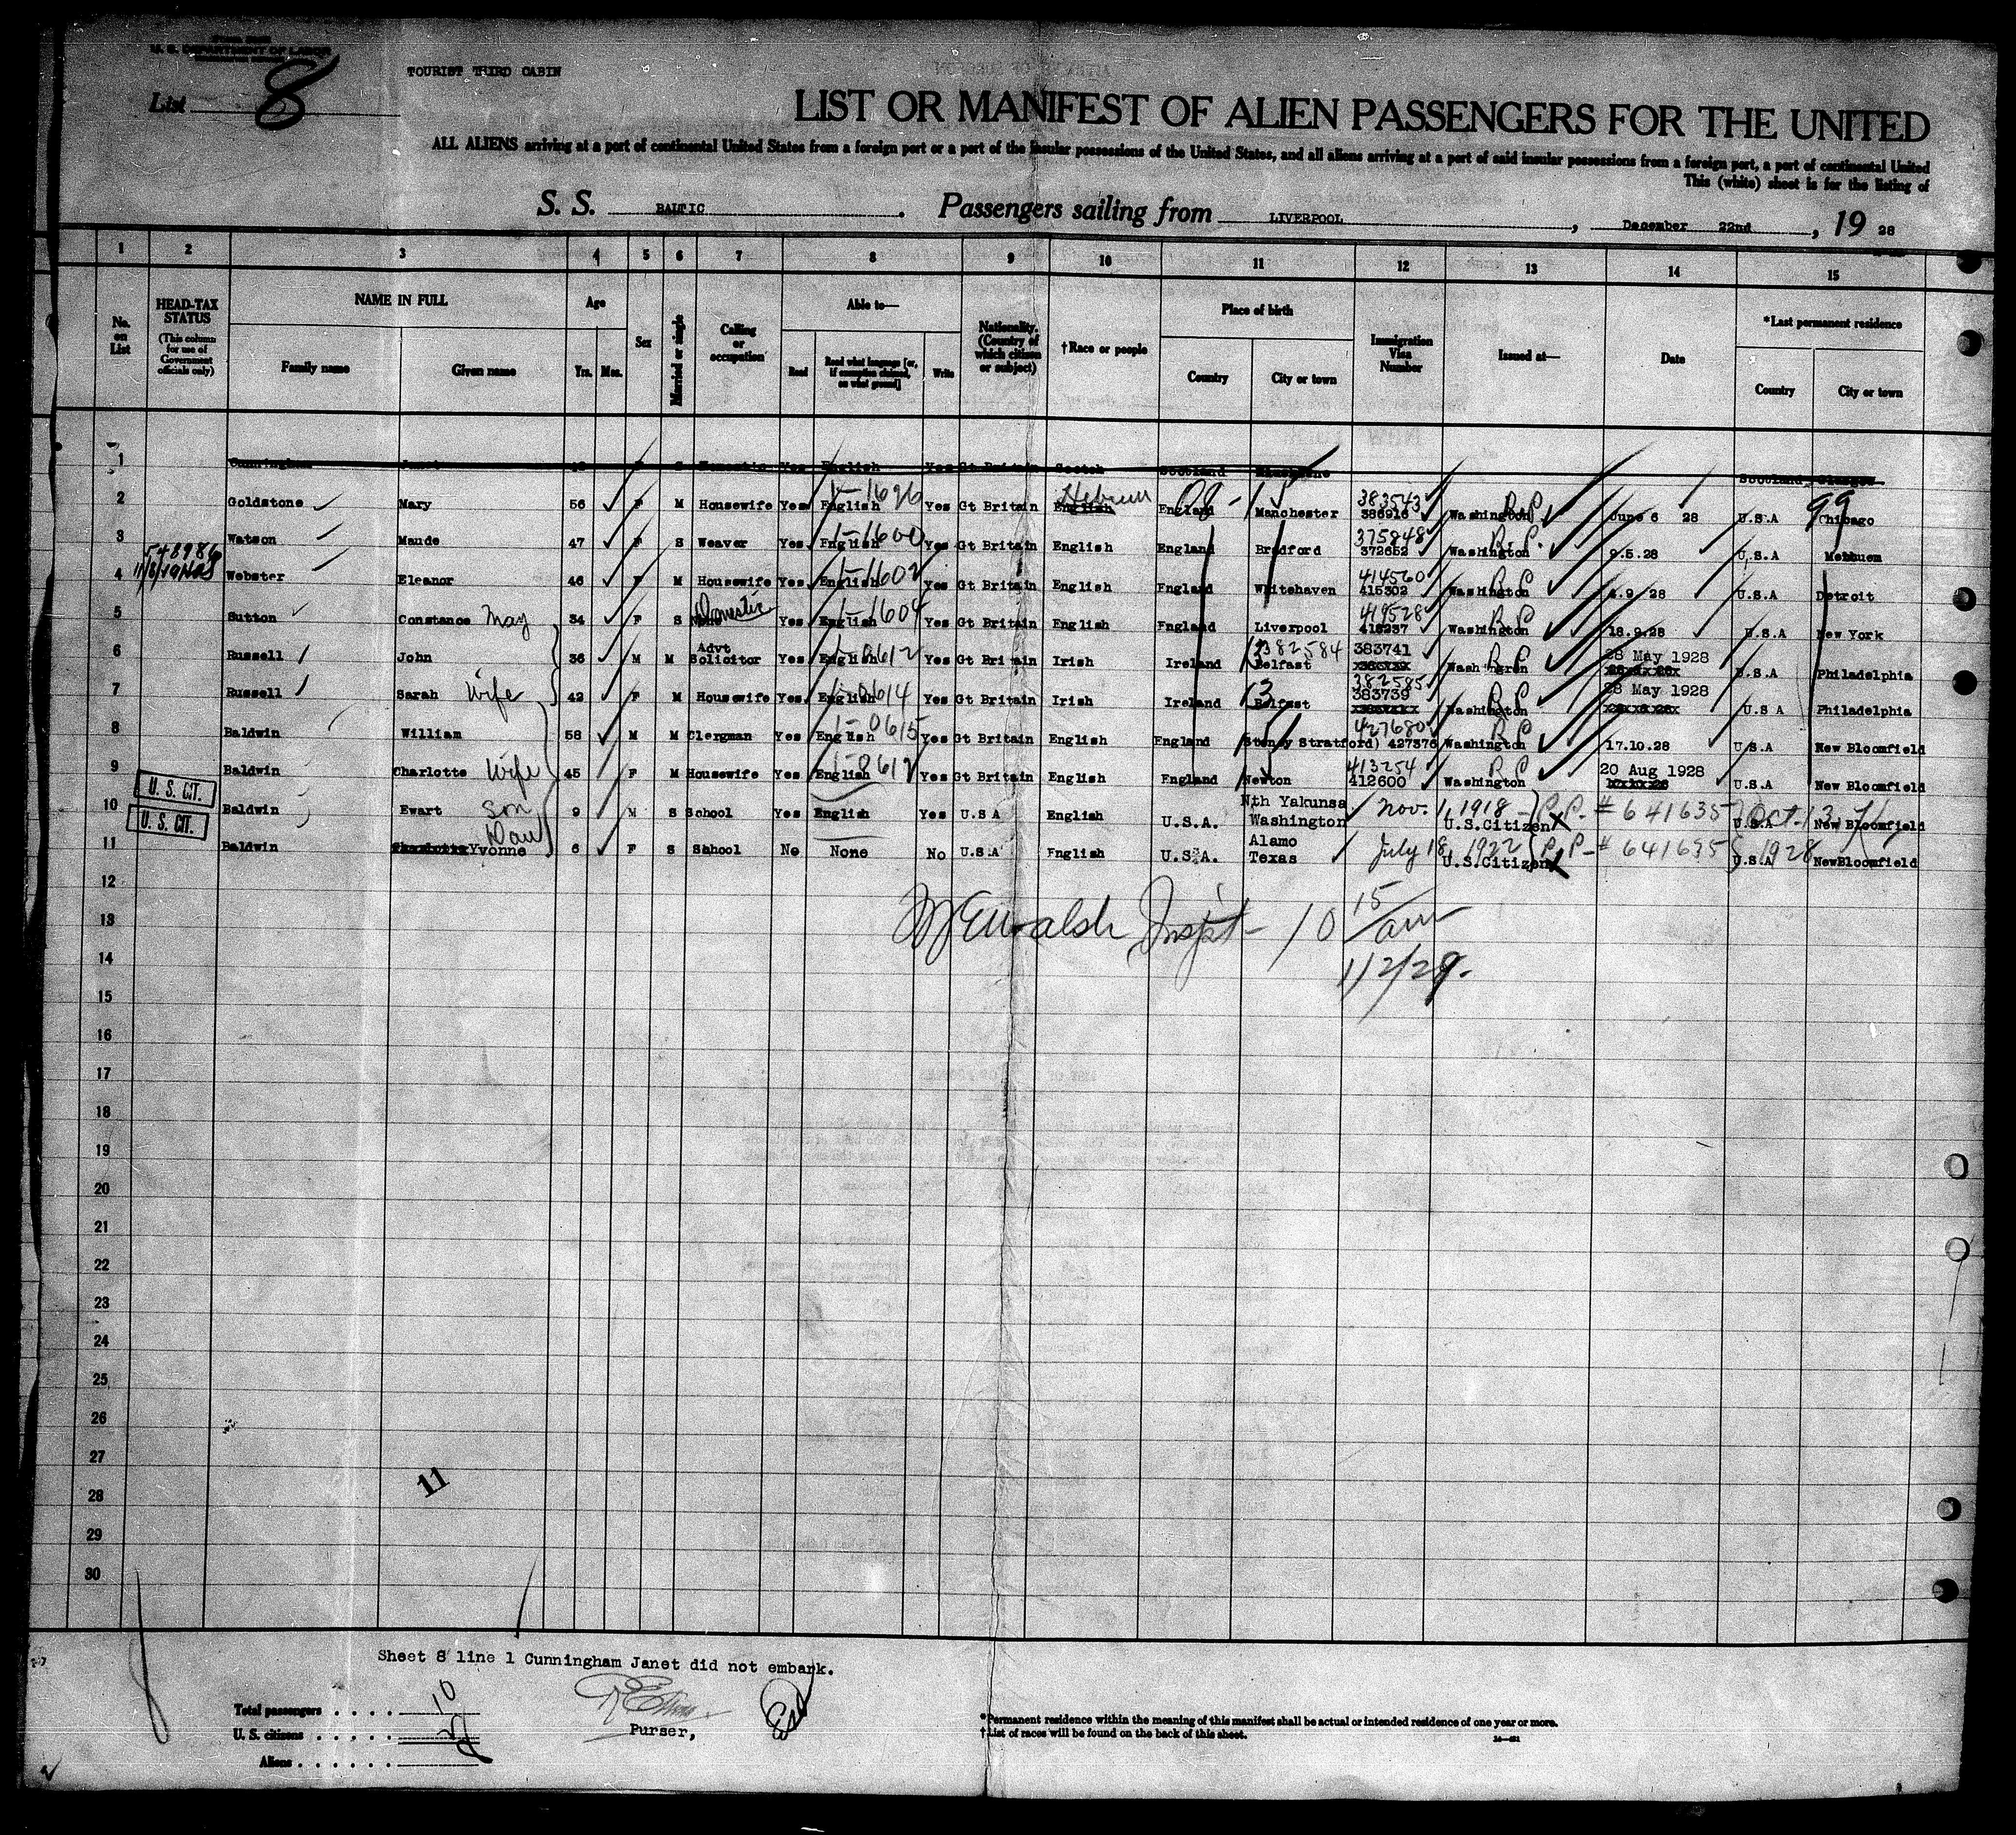 U. S. DEPARTMENT OF LABOR
TOURIST THIRD CABIN
List 8
LIST OR MANIFEST OF ALIEN PASSENGERS FOR THE UNITED
ALL ALIENS arriving at a port of continental United States from a foreign port or a port of the insular possessions of the United States, and all aliens arriving at a port of said insular possessions from a foreign port, a port of continental United
This (white) sheet is for the listing of
S. S. BALTIC. Passengers sailing from LIVERPOOL, December 22nd, 19 28
1 2 3 4 5 6 7 8 9 10 11 12 13 14 15
No. on List
HEAD-TAX STATUS (This column for use of Government officials only)
NAME IN FULL Family name Given name
Age Yrs. Mos.
Sex
Married or single
Calling or occupation
Able to— Read Read what language [or, if exemption claimed, on what ground] Write
Nationality. (Country of which citizen or subject)
†Race or people
Place of birth Country City or town
Immigration Visa Number
Issued at—
Date
*Last permanent residence Country City or town
1 Cunningham Janet S Domestic Yes English Yes Gt Britain Scotch Scotland Scotland Glasgow
2 Goldstone Mary 56 F M Housewife Yes English 1-1696 Yes Gt Britain English Hebrew England Manchester 383543 386916 Washington R P June 6 28 U.S.A Chicago 99
3 Watson Maude 47 F S Weaver Yes English 1-1600 Yes Gt Britain English England Bradford 375848 372652 Washington R P 9.5.28 U.S.A Methuen
548986
4 Webster Eleanor 46 F M Housewife Yes English 1-1602 Yes Gt Britain English England Whitehaven 414560 415302 Washington R P 4.9 28 U.S.A Detroit
5 Sutton Constance May 34 F S Domestic Yes English 1-1604 Yes Gt Britain English England Liverpool 419528 418237 Washington R P 18.9.28 U.S.A New York
6 Russell John 36 M M Advt Solicitor Yes English 1-0612 Yes Gt Britain Irish Ireland Belfast 382584 383741 Washington R P 28 May 1928 U.S.A Philadelphia
7 Russell Sarah Wife 42 F M Housewife Yes English 0614 Yes Gt Britain Irish Ireland Belfast 382585 383739 Washington R P 28 May 1928 U.S A Philadelphia
8 Baldwin William 58 M M Clergman Yes English 1-0615 Yes Gt Britain English England Stoney Stratford) 427680 427376 Washington R P 17.10.28 U.S.A New Bloomfield
9 Baldwin Charlotte Wife 45 F M Housewife Yes English 1-0617 Yes Gt Britain English England Newton 413254 412600 Washington R P 20 Aug 1928 U.S.A New Bloomfield
U. S. CIT.
10 Baldwin Ewart Son 9 M S School Yes English Yes U.S A English U.S.A. Nth Yakunsa Washington Nov. 1, 1918 U.S.Citizen P.P. # 641635 Oct. 13 U.S.A New Bloomfield
U. S. CIT.
11 Baldwin Yvonne Dau 6 F S School No None No U.S.A English U.S.A. Alamo Texas July 18, 1922 U.S.Citizen P.P- # 641635 1928 U.S.A NewBloomfield
12
13 Inspt- 10 15/am
14 1/2/29.
15
16
17
18
19
20
21
22
23
24
25
26
27
28 11
29
30
Sheet 8 line 1 Cunningham Janet did not embark.
Total passengers 10
U. S. citizens 2
Aliens
Purser,
*Permanent residence within the meaning of this manifest shall be actual or intended residence of one year or more.
†List of races will be found on the back of this sheet.